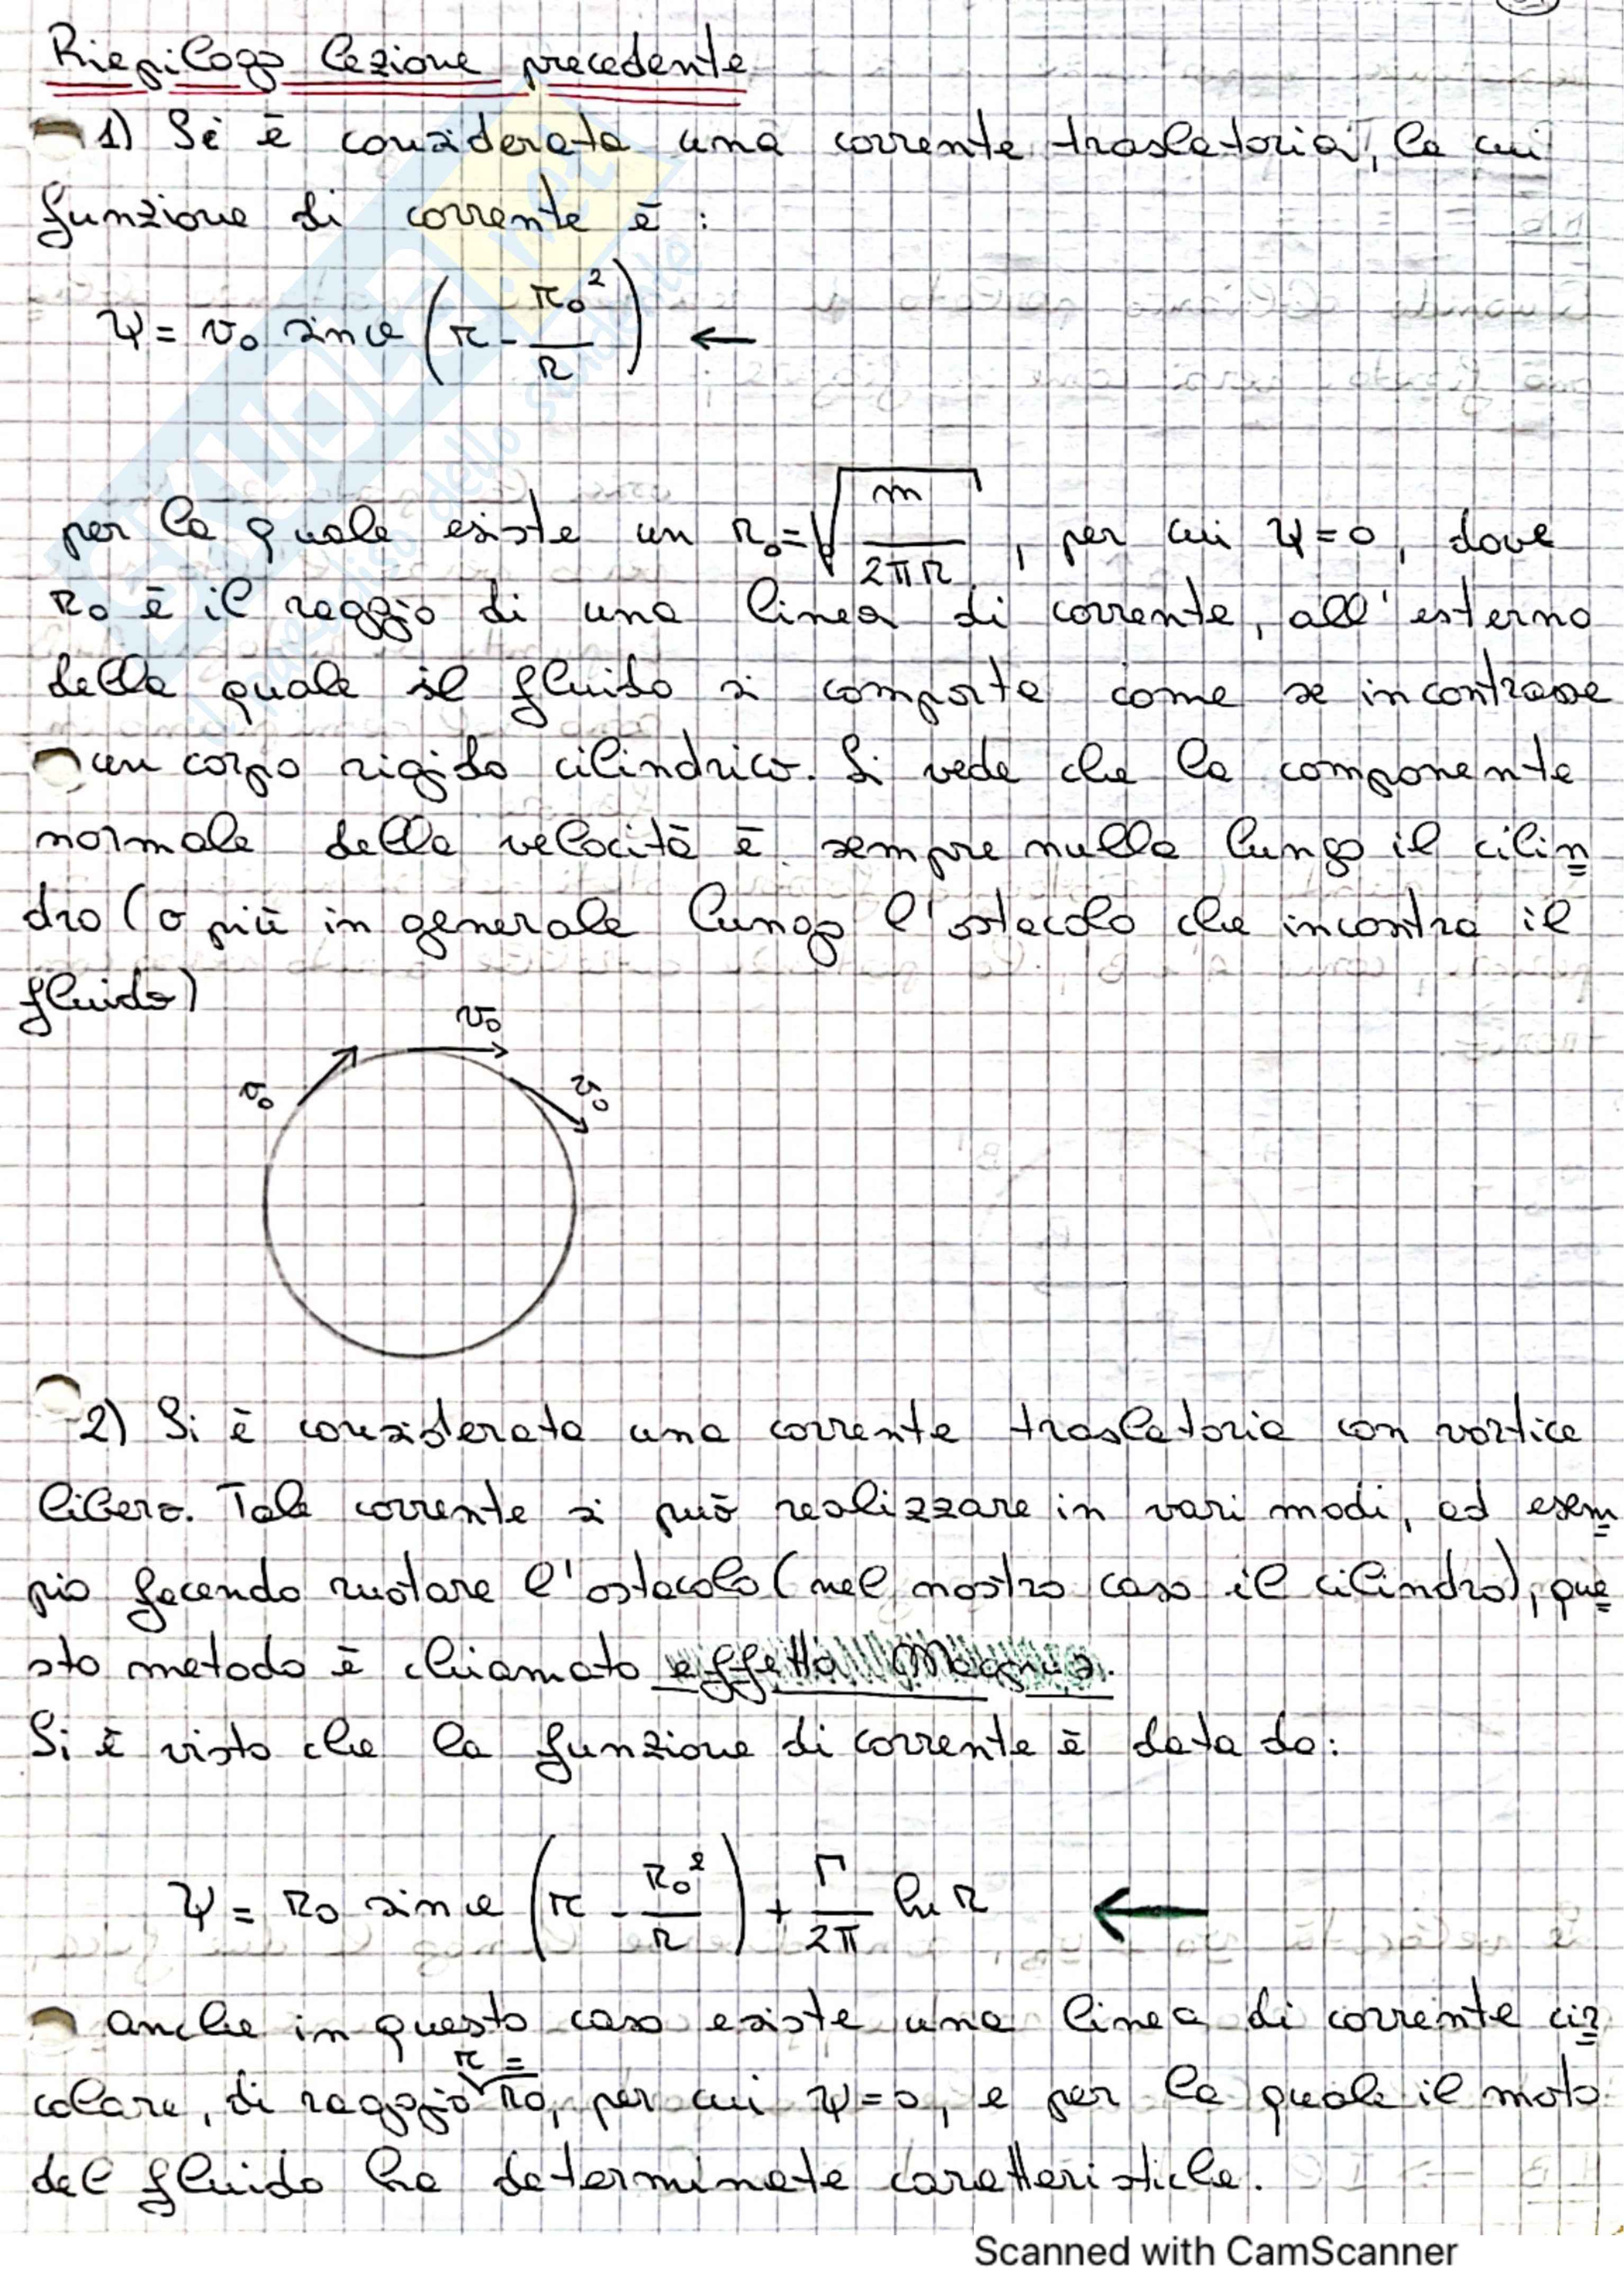 Riepilogo lezione precedente
1) Si è considerata una corrente traslatoria, la cui
funzione di corrente è :
ψ = v₀ sinα (r - r₀²/r) ←
per la quale esiste un r₀=√(m/2πr), per cui ψ=0, dove
r₀ è il raggio di una linea di corrente, all'esterno
della quale il fluido si comporta come se incontrasse
un corpo rigido cilindrico. Si vede che la componente
normale della velocità è sempre nulla lungo il cilin
dro (o più in generale lungo l'ostacolo che incontra il
fluido)
v₀
v₀
v₀
2) Si è considerata una corrente traslatoria con vortice
libero. Tale corrente si può realizzare in vari modi, ad esem
pio facendo ruotare l'ostacolo (nel nostro caso il cilindro), que
sto metodo è chiamato effetto Magnus.
Si è visto che la funzione di corrente è data da:
ψ = r₀ sinα (r - r₀²/r) + Γ/2π ln r ←
anche in questo caso esiste una linea di corrente cir
colare, di raggio r = r₀, per cui ψ=0, e per la quale il moto
del fluido ha determinate caratteristiche.
Scanned with CamScanner